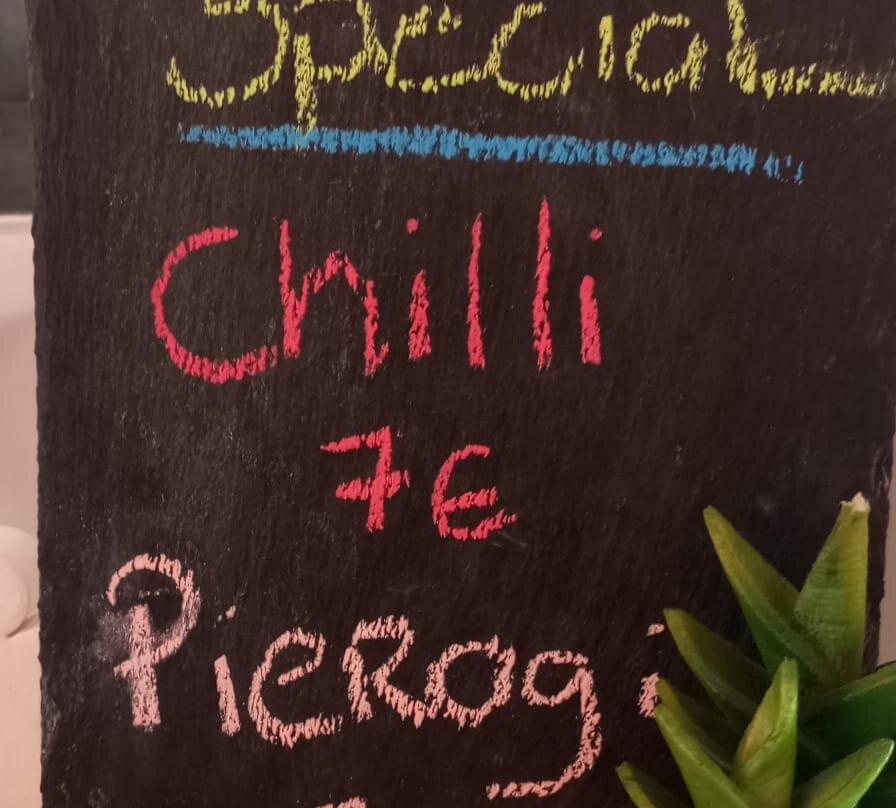 Special
Chilli
7€
Pierogi